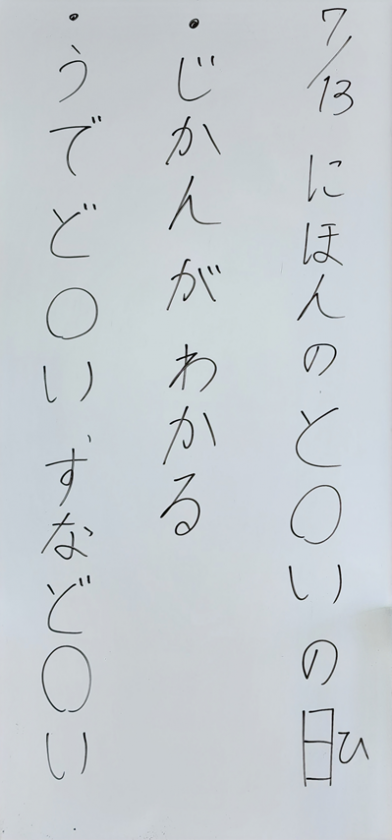 7/13 にほんのと○いの日ひ
・じかんがわかる
・うでど○い、すなど○い